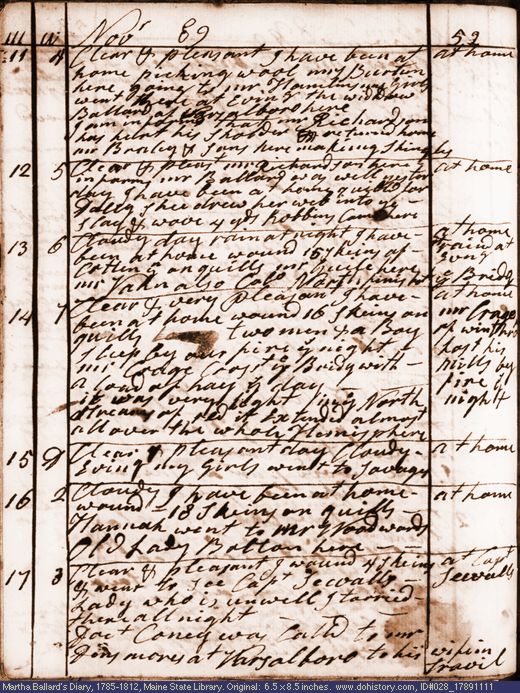 11 12 Novr 89 59
11 4 Clear & pleasant I have been at at home
home picking wool mrs Burtun
here going to mr Hamlins my Girls
went there at Evng the widdow
Ballard of here
mr Richardson
has hurt his Shoulder & returnd home
mr Braley & Sons here making Shingles
12 5 Clear & pleast mr Richardson here at home
mr Ballard
day I have been at home quild for
Dolly Shee drew her web into ye
Slay & wove 4 yds Robbins Came here
13 6 Cloudy day rain at night I have at home
been at home wound 15 Skeins of raind at
on quills mr here Evng
mr Vahn also Capt North finisht ye Bridg
14 7 Clear & very Pleasant I have at home
been at home wound 16 Skeins on mr Crage
quills two men & a Boy of winthrop
Sleep by our fire ye night lost his
mr Crage Crost ye Bridg with mills by
a load of hay ye day fire ye
it was very light in ye North night
Streams of red it Extended almost
all over the whole Hemisphere
15 D Clear & pleasant day Cloudy at home
Evng my Girls went to Savages
16 2 Cloudy I have been at home at home
wound 18 Skeins on quills
Hannah went to mr Woodwards
Old Lady Bolton here
17 3 Clear & pleasant I wound 4 Skeins at Capt
& went to See Capt Sewalls Sewalls
Lady who is unwell I tarried
there all night
Doct Coney was Calld to mr
Dinsmores at Varsalboro to his wife in
Travil
Martha Ballard's Diary, 1785-1812, Maine State Library. Original: 6.5 x 8.5 inches. www.dohistory.com, ID#028_17891111